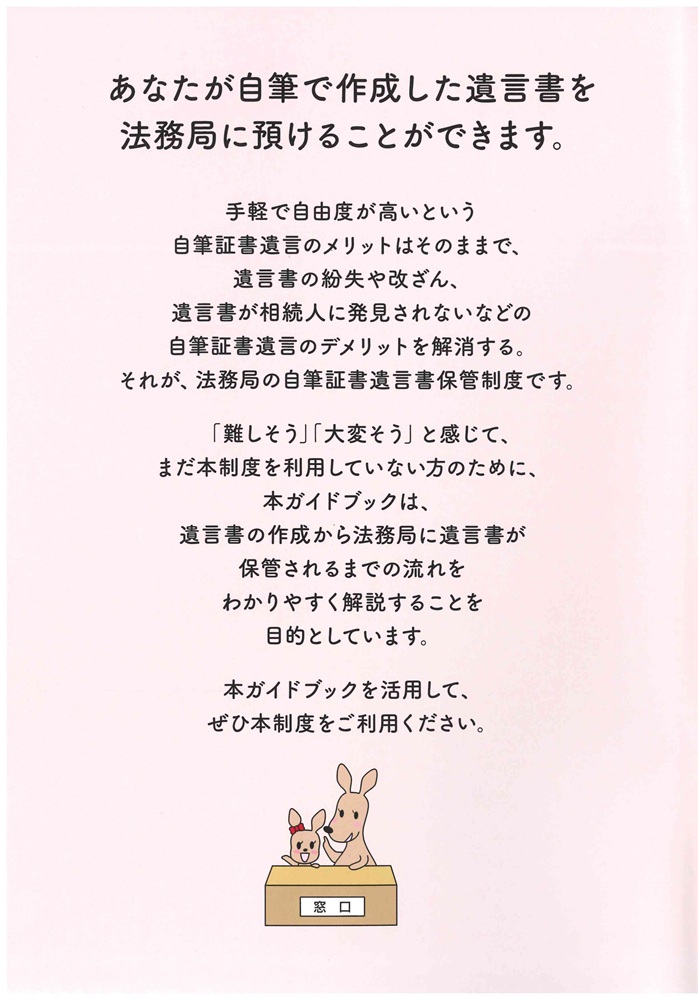 あなたが自筆で作成した遺言書を
法務局に預けることができます。
手軽で自由度が高いという
自筆証書遺言のメリットはそのままで、
遺言書の紛失や改ざん、
遺言書が相続人に発見されないなどの
自筆証書遺言のデメリットを解消する。
それが、法務局の自筆証書遺言書保管制度です。
「難しそう」「大変そう」と感じて、
まだ本制度を利用していない方のために、
本ガイドブックは、
遺言書の作成から法務局に遺言書が
保管されるまでの流れを
わかりやすく解説することを
目的としています。
本ガイドブックを活用して、
ぜひ本制度をご利用ください。
窓 口